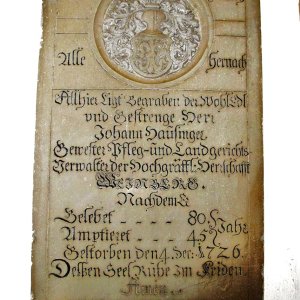 Alle hernach
Allhier Ligt Begraben der Wohl Edl
und Gestrenge Herr
Johann Hausinger
Gewester Pfleg-und Landgerichts
Verwalter der Hochgräffl: Herrschafft
WEINBERG.
Nachdem Er
Gelebet - - - 80. Jahr
Amptiret - - - 45 Jahr
Gestorben den 4. Dec: 1726.
Dessen Seel Ruhe Im Friden